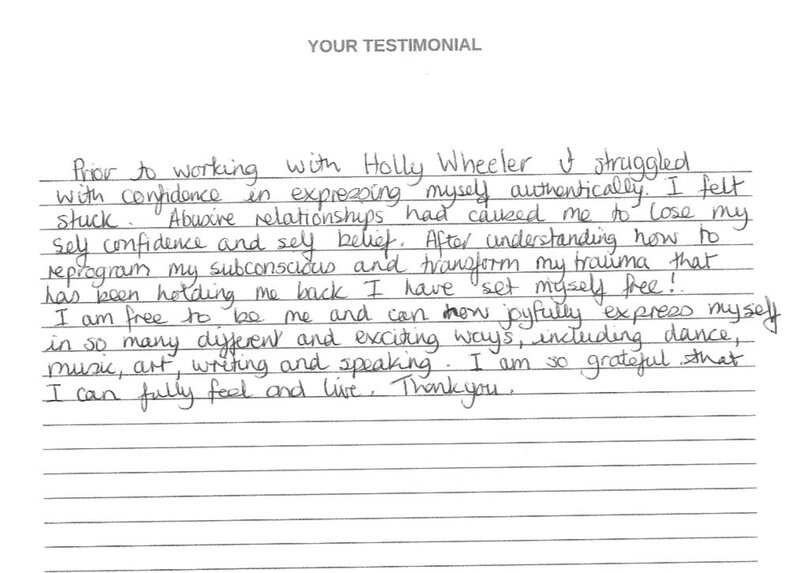 YOUR TESTIMONIAL
Prior to working with Holly Wheeler I struggled
with confidence in expressing myself authentically. I felt
stuck. Abusive relationships had caused me to lose my
self confidence and self belief. After understanding how to
reprogram my subconscious and transform my trauma that
has been holding me back I have set myself free!
I am free to be me and can now joyfully express myself
in so many different and exciting ways, including dance,
music, art, writing and speaking. I am so grateful that
I can fully feel and live. Thankyou.